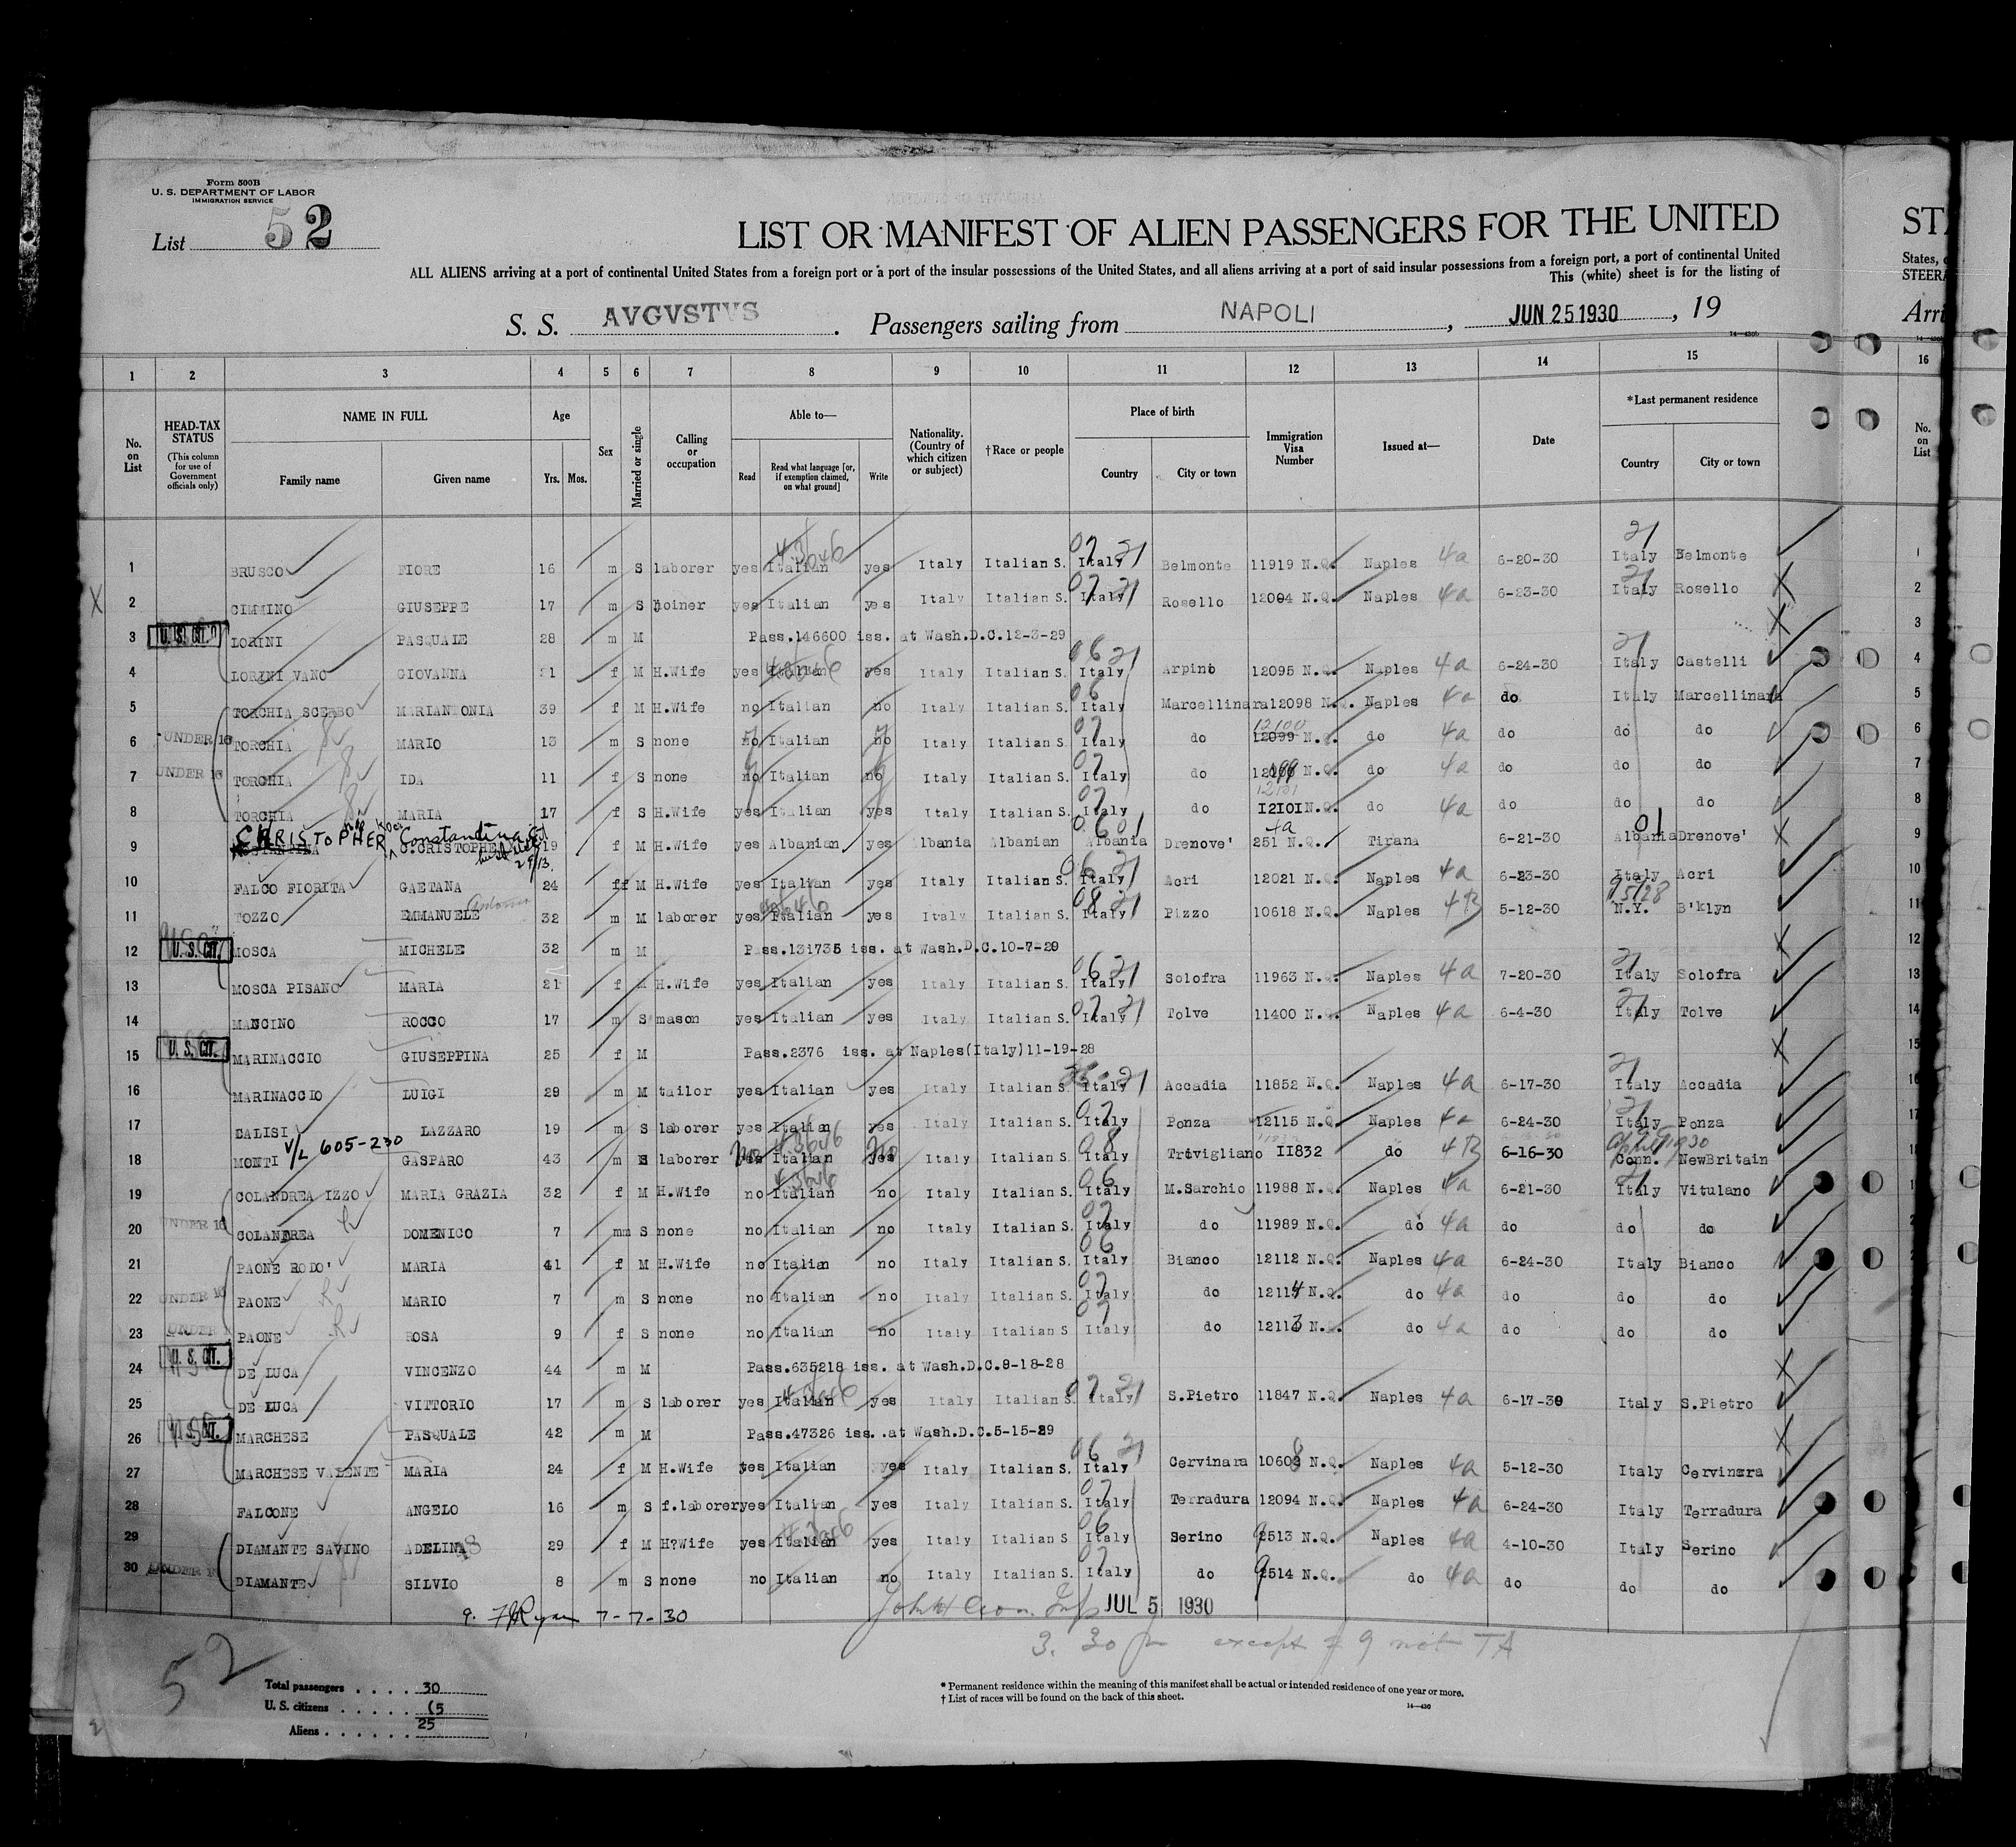 Form 500B
U. S. DEPARTMENT OF LABOR
IMMIGRATION SERVICE
List 52
LIST OR MANIFEST OF ALIEN PASSENGERS FOR THE UNITED
ALL ALIENS arriving at a port of continental United States from a foreign port or a port of the insular possessions of the United States, and all aliens arriving at a port of said insular possessions from a foreign port, a port of continental United
This (white) sheet is for the listing of
S. S. AVGVSTVS. Passengers sailing from NAPOLI, JUN 25 1930, 19
14—430b
STA
States,
STEERA
Arri
1 2 3 4 5 6 7 8 9 10 11 12 13 14 15 16
No. on List
HEAD-TAX STATUS (This column for use of Government officials only)
NAME IN FULL
Family name Given name
Age Yrs. Mos.
Sex
Married or single
Calling or occupation
Able to—
Read Read what language [or, if exemption claimed, on what ground] Write
Nationality. (Country of which citizen or subject)
†Race or people
Place of birth
Country City or town
Immigration Visa Number
Issued at—
Date
*Last permanent residence
Country City or town
No. on List
1 BRUSCO FIORE 16 m S laborer yes Italian yes Italy Italian S. Italy Belmonte 11919 N.Q. Naples 4a 6-20-30 Italy Belmonte
X 2 CIMMINO GIUSEPPE 17 m S joiner yes Italian yes Italy Italian S. Italy Rosello 12004 N.Q. Naples 4a 6-23-30 Italy Rosello X 2
3 U. S. CIT. LORINI PASQUALE 28 m M Pass.146600 iss. at Wash.D.C.12-3-29 X 3
4 LORINI VANO GIOVANNA 21 f M H.Wife yes Italian yes Italy Italian S. Italy Arpino 12095 N.Q. Naples 4a 6-24-30 Italy Castelli 4
5 TORCHIA SCERBO MARIANTONIA 39 f M H.Wife no Italian no Italy Italian S. Italy Marcellinara 12098 N.Q. Naples 4a do Italy Marcellinara 5
6 UNDER 16 TORCHIA MARIO 13 m S none no Italian no Italy Italian S. Italy do 12099 12100 N.Q. do 4a do do do 6
7 UNDER 16 TORCHIA IDA 11 f S none no Italian no Italy Italian S. Italy do 12099 N.Q. do 4a do do do 7
8 TORCHIA MARIA 17 f S H.Wife yes Italian yes Italy Italian S. Italy do 12101 N.Q. do 4a do do do 8
9 CHRISTOPHER Constantina C.CRISTOPHER 19 f M H.Wife yes Albanian yes Albania Albanian Albania Drenove' 251 N.Q. 4a Tirana 6-21-30 Albania Drenove' X 9
10 FALCO FIORITA GAETANA 24 ff M H.Wife yes Italian yes Italy Italian S. Italy Acri 12021 N.Q. Naples 4a 6-23-30 Italy Acri 10
11 TOZZO EMMANUELE Antonio 32 m M laborer yes Italian yes Italy Italian S. Italy Pizzo 10618 N.Q. Naples 4B 5-12-30 N.Y. B'klyn 11
12 U. S. CIT. MOSCA MICHELE 32 m M Pass.131735 iss. at Wash.D.C.10-7-29 X 12
13 MOSCA PISANO MARIA 21 f M H.Wife yes Italian yes Italy Italian S. Italy Solofra 11963 N.Q. Naples 4a 7-20-30 Italy Solofra 13
14 MANCINO ROCCO 17 m S mason yes Italian yes Italy Italian S. Italy Tolve 11400 N.Q. Naples 4a 6-4-30 Italy Tolve 14
15 U. S. CIT. MARINACCIO GIUSEPPINA 25 f M Pass.2376 iss. at Naples(Italy)11-19-28 X 15
16 MARINACCIO LUIGI 29 m M tailor yes Italian yes Italy Italian S. Italy Accadia 11852 N.Q. Naples 4a 6-17-30 Italy Accadia 16
17 CALISI LAZZARO 19 m S laborer yes Italian yes Italy Italian S. Italy Ponza 12115 N.Q. Naples 4a 6-24-30 Italy Ponza 17
V/L 605-230
18 MONTI GASPARO 43 m M laborer yes no Italian yes no Italy Italian S. Italy Trivigliano 11832 do 4B 6-16-30 Conn. NewBritain 18
19 COLANDREA IZZO MARIA GRAZIA 32 f M H.Wife no Italian no Italy Italian S. Italy M.Sarchio 11988 N.Q. Naples 4a 6-21-30 Italy Vitulano
20 UNDER 16 COLANDREA DOMENICO 7 mm S none no Italian no Italy Italian S. Italy do 11989 N.Q. do 4a do do do
21 PAONE RODO' MARIA 41 f M H.Wife no Italian no Italy Italian S. Italy Bianco 12112 N.Q. Naples 4a 6-24-30 Italy Bianco
22 UNDER 16 PAONE MARIO 7 m S none no Italian no Italy Italian S. Italy do 12114 N.Q. do 4a do do do
23 UNDER PAONE ROSA 9 f S none no Italian no Italy Italian S Italy do 12113 N.Q. do 4a do do do
24 U. S. CIT. DE LUCA VINCENZO 44 m M Pass.635218 iss. at Wash.D.C.9-18-28 X
25 DE LUCA VITTORIO 17 m S laborer yes Italian yes Italy Italian S. Italy S.Pietro 11847 N.Q. Naples 4a 6-17-30 Italy S.Pietro
26 U. S. CIT. MARCHESE PASQUALE 42 m M Pass.47326 iss. .at Wash.D.C.5-15-29 X
27 MARCHESE VALENTE MARIA 24 f M H.Wife yes Italian yes Italy Italian S. Italy Cervinara 10608 N.Q. Naples 4a 5-12-30 Italy Cervinara
28 FALCONE ANGELO 16 m S f.laborer yes Italian yes Italy Italian S. Italy Terradura 12094 N.Q. Naples 4a 6-24-30 Italy Terradura
29 DIAMANTE SAVINO ADELINA 29 f M H?Wife yes Italian yes Italy Italian S Italy Serino 9513 N.Q. Naples 4a 4-10-30 Italy Serino
30 UNDER DIAMANTE SILVIO 8 m S none no Italian no Italy Italian S. Italy do 9514 N.Q. do 4a do do do
7-7-30 JUL 5 1930
3.30 except 9 not TA
52
Total passengers . . . . 30
U. S. citizens . . . . . 5
Aliens . . . . . . 25
* Permanent residence within the meaning of this manifest shall be actual or intended residence of one year or more.
† List of races will be found on the back of this sheet.
14—430